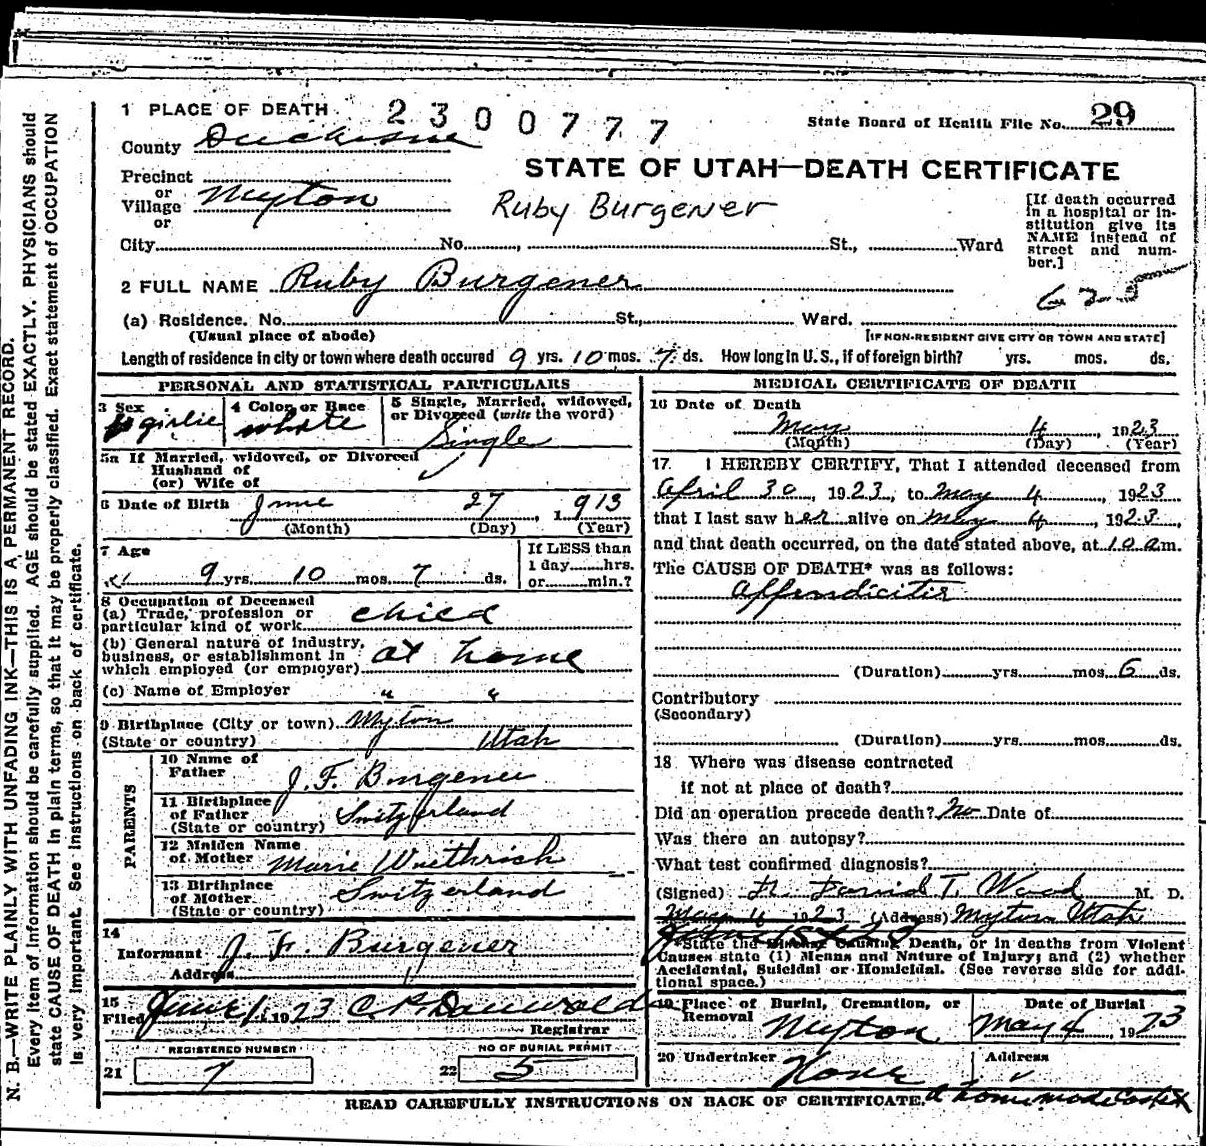 1 PLACE OF DEATH 2300777
State Board of Health File No. 29
County Duchesne
STATE OF UTAH—DEATH CERTIFICATE
Precinct
or
Village Myton
or
Ruby Burgener
[If death occurred in a hospital or institution give its NAME instead of street and number.]
City No. , St., Ward
2 FULL NAME Ruby Burgener
625
(a) Residence. No. St., Ward.
(Usual place of abode) [IF NON-RESIDENT GIVE CITY OR TOWN AND STATE]
Length of residence in city or town where death occured 9 yrs. 10 mos. 7 ds. How long in U. S., if of foreign birth? yrs. mos. ds.
PERSONAL AND STATISTICAL PARTICULARS
3 Sex girlie
4 Color or Race white
5 Single, Married, widowed, or Divorced (write the word) Single
5a If Married, widowed, or Divorced
Husband of
(or) Wife of
6 Date of Birth June 27, 1913
(Month) (Day) (Year)
7 Age
9 yrs. 10 mos. 7 ds.
If LESS than
1 day hrs.
or min.?
8 Occupation of Deceased
(a) Trade, profession or
particular kind of work child
(b) General nature of industry,
business, or establishment in
which employed (or employer) at home
(c) Name of Employer " "
9 Birthplace (City or town) Myton
(State or country) Utah
PARENTS
10 Name of
Father J. F. Burgener
11 Birthplace
of Father
(State or country) Switzerland
12 Maiden Name
of Mother Marie Wuethrich
13 Birthplace
of Mother
(State or country) Switzerland
14
Informant J. F. Burgener
Address
15
Filed June 1, 1923
Registrar
REGISTERED NUMBER
21 7
NO OF BURIAL PERMIT
22 5
MEDICAL CERTIFICATE OF DEATH
16 Date of Death
May 4, 1923
(Month) (Day) (Year)
17. I HEREBY CERTIFY, That I attended deceased from
April 30, 1923, to May 4, 1923
that I last saw her alive on May 4, 1923,
and that death occurred, on the date stated above, at 10 am.
The CAUSE OF DEATH* was as follows:
Appendicitis
(Duration) yrs. mos. 6 ds.
Contributory
(Secondary)
(Duration) yrs. mos. ds.
18 Where was disease contracted
if not at place of death?
Did an operation precede death? No Date of
Was there an autopsy?
What test confirmed diagnosis?
(Signed) T. Wood M. D.
May 4 1923 (Address) Myton Utah
*State the Disease Causing Death, or in deaths from Violent
Causes state (1) Means and Nature of Injury; and (2) whether
Accidental, Suicidal or Homicidal. (See reverse side for addi-
tional space.)
19 Place of Burial, Cremation, or
Removal Myton
Date of Burial
May 4, 1923
20 Undertaker None
Address
a homemade casket
READ CAREFULLY INSTRUCTIONS ON BACK OF CERTIFICATE.
N. B.—WRITE PLAINLY WITH UNFADING INK—THIS IS A PERMANENT RECORD.
Every item of Information should be carefully supplied. AGE should be stated EXACTLY. PHYSICIANS should
state CAUSE OF DEATH in plain terms, so that it may be properly classified. Exact statement of OCCUPATION
is very important. See instructions on back of certificate.